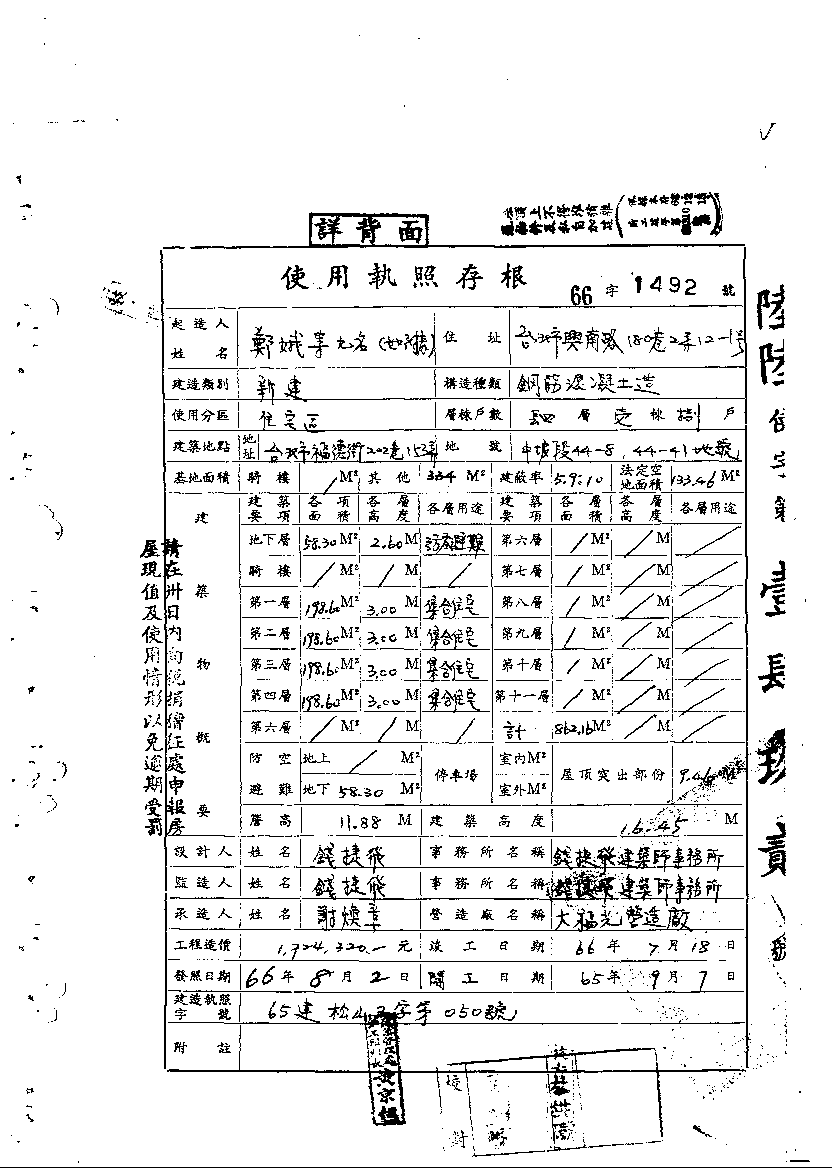 詳背面
使用執照存根
66 字 1492 號
起造人姓名 鄭娥等九名 住址 台北市興南路180巷2弄12-1號
建造類別 新建 構造種類 鋼筋混凝土造
使用分區 住宅區 層棟戶數 肆 層 壹 棟 捌 戶
建築地點 地址 台北市福德街202巷 地號 中坡段44-8,44-41地號
基地面積 騎樓 / M² 其他 334 M² 建蔽率 59:10 法定空地面積 133.46 M²
建築物概要 建築要項 各項面積 各層高度 各層用途 建築要項 各層面積 各層高度 各層用途
地下層 58.30 M² 2.60 M 防空避難 第六層 / M² / M /
騎樓 / M² / M / 第七層 / M² / M /
第一層 198.60 M² 3.00 M 集合住宅 第八層 / M² / M /
第二層 198.60 M² 3.00 M 集合住宅 第九層 / M² / M /
第三層 198.60 M² 3.00 M 集合住宅 第十層 / M² / M /
第四層 198.60 M² 3.00 M 集合住宅 第十一層 / M² / M /
第六層 / M² / M / 計 862.16 M² / M /
防空避難 地上 / M² 停車場 室內M² 屋頂突出部份 9.46 M²
地下 58.30 M² 室外M²
簷高 11.88 M 建築高度 16.45 M
設計人 姓名 錢捷飛 事務所名稱 錢捷飛建築師事務所
監造人 姓名 錢捷飛 事務所名稱 錢捷飛建築師事務所
承造人 姓名 謝煥章 營造廠名稱 大福光營造廠
工程造價 1,724,320.- 元 竣工日期 66年7月18日
發照日期 66年8月2日 開工日期 65年9月7日
建造執照字號 65建松山字第050號
附註
請在卅日內向稅捐稽征處申報房
屋現值及使用情形以免逾期受罰
校對